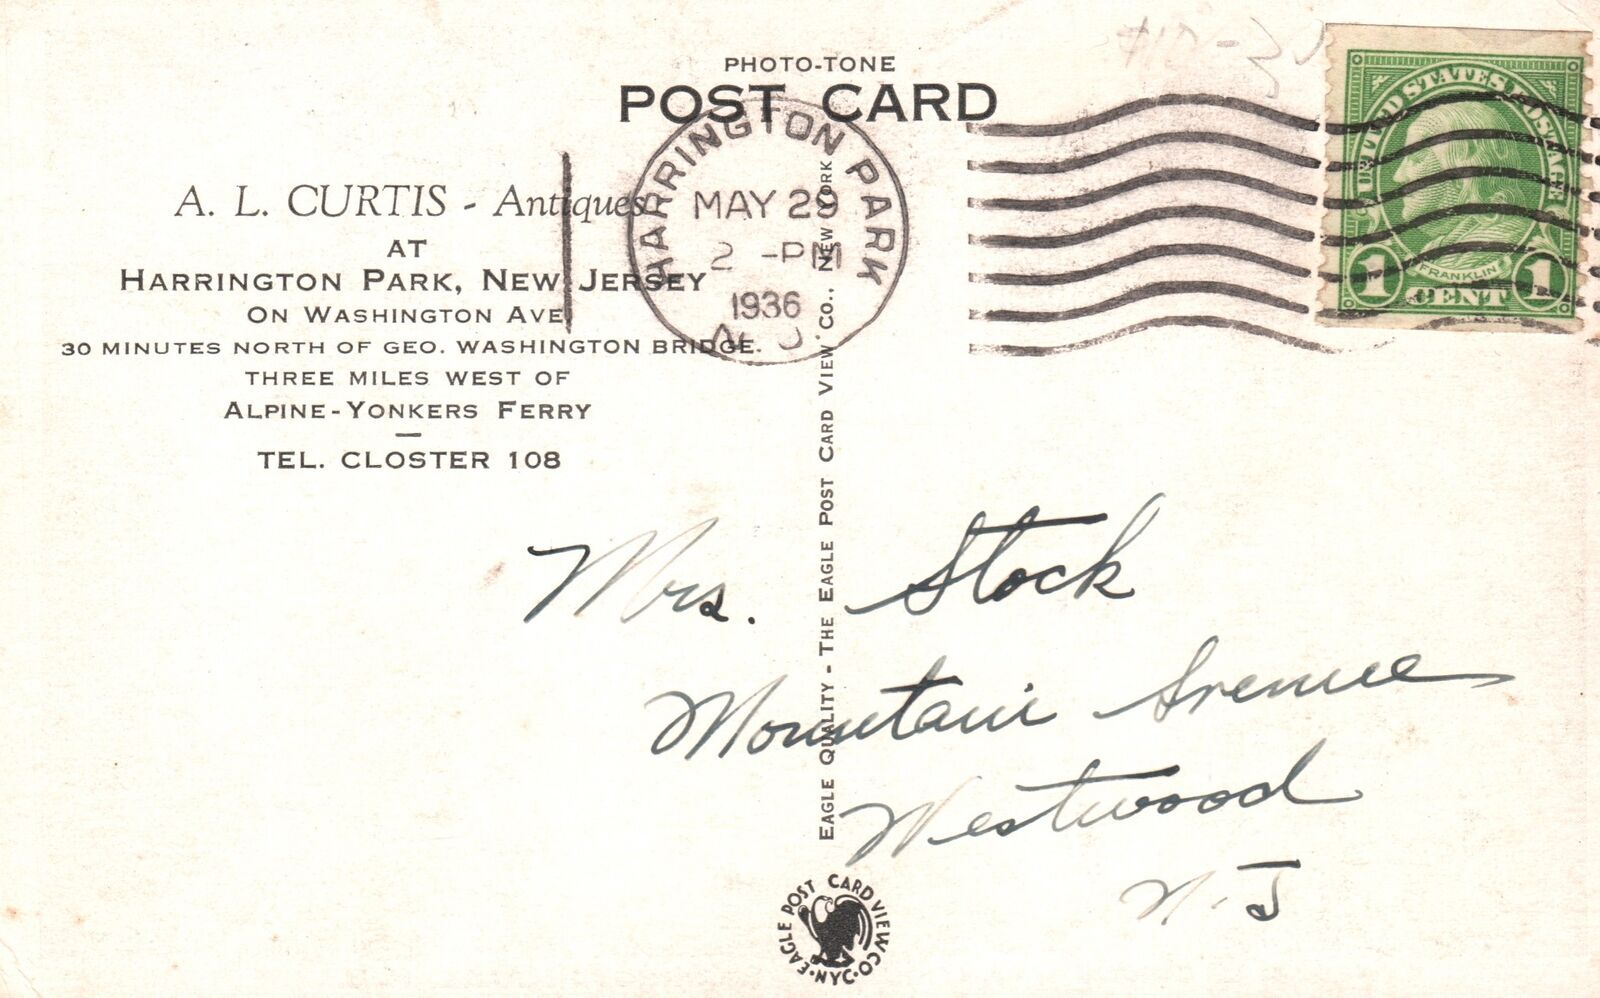 PHOTO-TONE
POST CARD
A. L. CURTIS - Antiques
AT
HARRINGTON PARK, NEW JERSEY
ON WASHINGTON AVE.
30 MINUTES NORTH OF GEO. WASHINGTON BRIDGE.
THREE MILES WEST OF
ALPINE-YONKERS FERRY
TEL. CLOSTER 108
HARRINGTON PARK
MAY 29
2 -PM
1936
N. J.
UNITED STATES POSTAGE
FRANKLIN
1 CENT 1
EAGLE QUALITY - THE EAGLE POST CARD VIEW CO., NEW YORK
Mrs. Stock
Mountain Avenue
Westwood
N. J
EAGLE POST CARD VIEW CO. NYC.